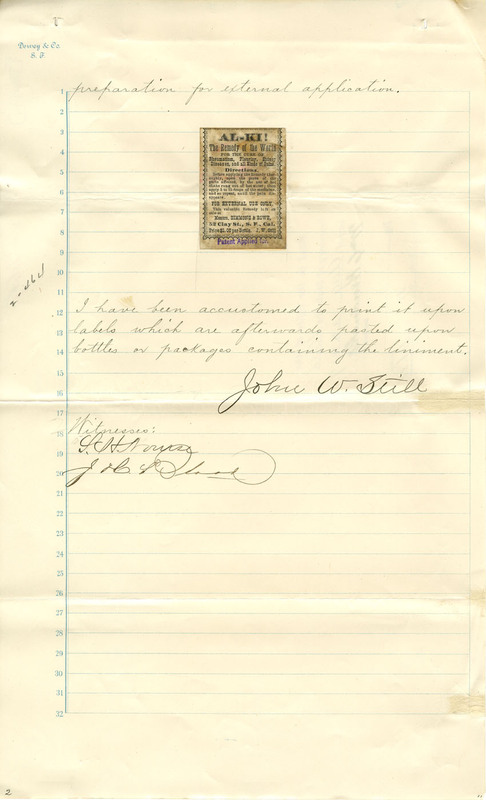 Dewey & Co.
S. F.
1 preparation for external application.
2
3
4
5
6
7
8
9
10
11
12
13
14
15
16
17
18
19
20
21
22
23
24
25
26
27
28
29
30
31
32
AL-KI!
The Remedy of the World
FOR THE CURE OF
Rheumatism, Pleurisy, Kidney
Diseases, and all Kinds of Pains
Directions.
FOR EXTERNAL USE ONLY.
This valuable Remedy is
Messrs. SIMMONS & ROWE,
Clay St., S. F., Cal.
Price $1.00 per Bottle.
Patent Applied for.
I have been accustomed to print it upon
labels which are afterwards pasted upon
bottles or packages containing the liniment.
John W. Still
Witnesses:
S. H. Nourse
2